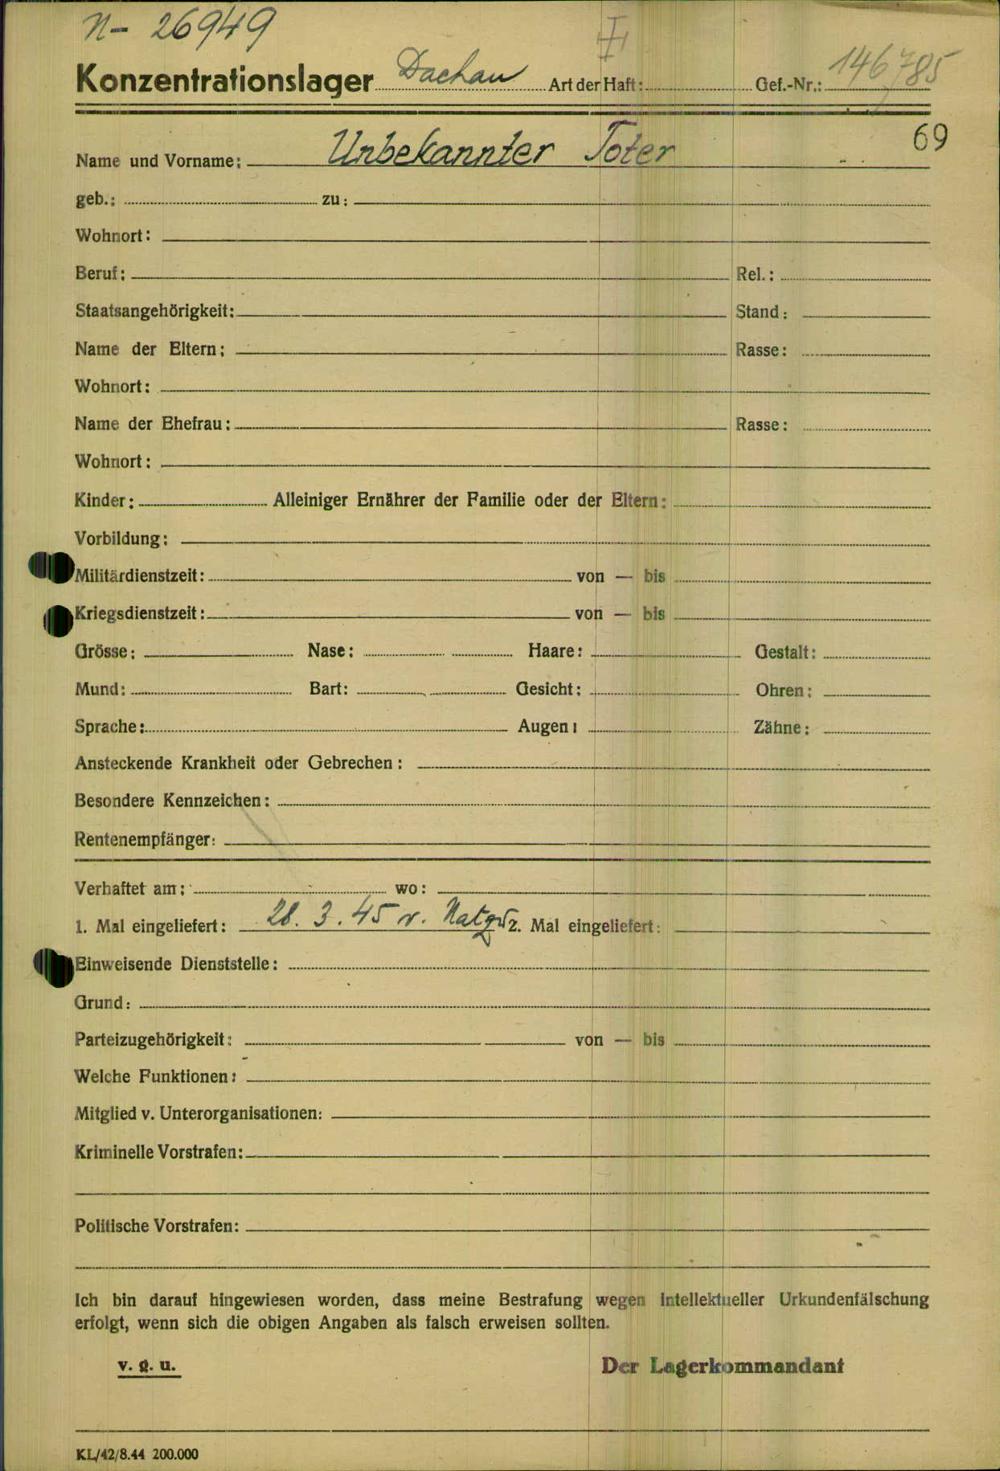 N- 26949
Konzentrationslager Dachau Art der Haft: Gef.-Nr.: 146785
69
Name und Vorname: Unbekannter Toter
geb.: zu:
Wohnort:
Beruf: Rel.:
Staatsangehörigkeit: Stand:
Name der Eltern: Rasse:
Wohnort:
Name der Ehefrau: Rasse:
Wohnort:
Kinder: Alleiniger Ernährer der Familie oder der Eltern:
Vorbildung:
Militärdienstzeit: von — bis
Kriegsdienstzeit: von — bis
Grösse: Nase: Haare: Gestalt:
Mund: Bart: Gesicht: Ohren:
Sprache: Augen: Zähne:
Ansteckende Krankheit oder Gebrechen:
Besondere Kennzeichen:
Rentenempfänger:
Verhaftet am: wo:
1. Mal eingeliefert: 28. 3. 45 v. Natzw. 2. Mal eingeliefert:
Einweisende Dienststelle:
Grund:
Parteizugehörigkeit: von — bis
Welche Funktionen:
Mitglied v. Unterorganisationen:
Kriminelle Vorstrafen:
Politische Vorstrafen:
Ich bin darauf hingewiesen worden, dass meine Bestrafung wegen intellektueller Urkundenfälschung
erfolgt, wenn sich die obigen Angaben als falsch erweisen sollten.
v. g. u. Der Lagerkommandant
KL/42/8.44 200.000